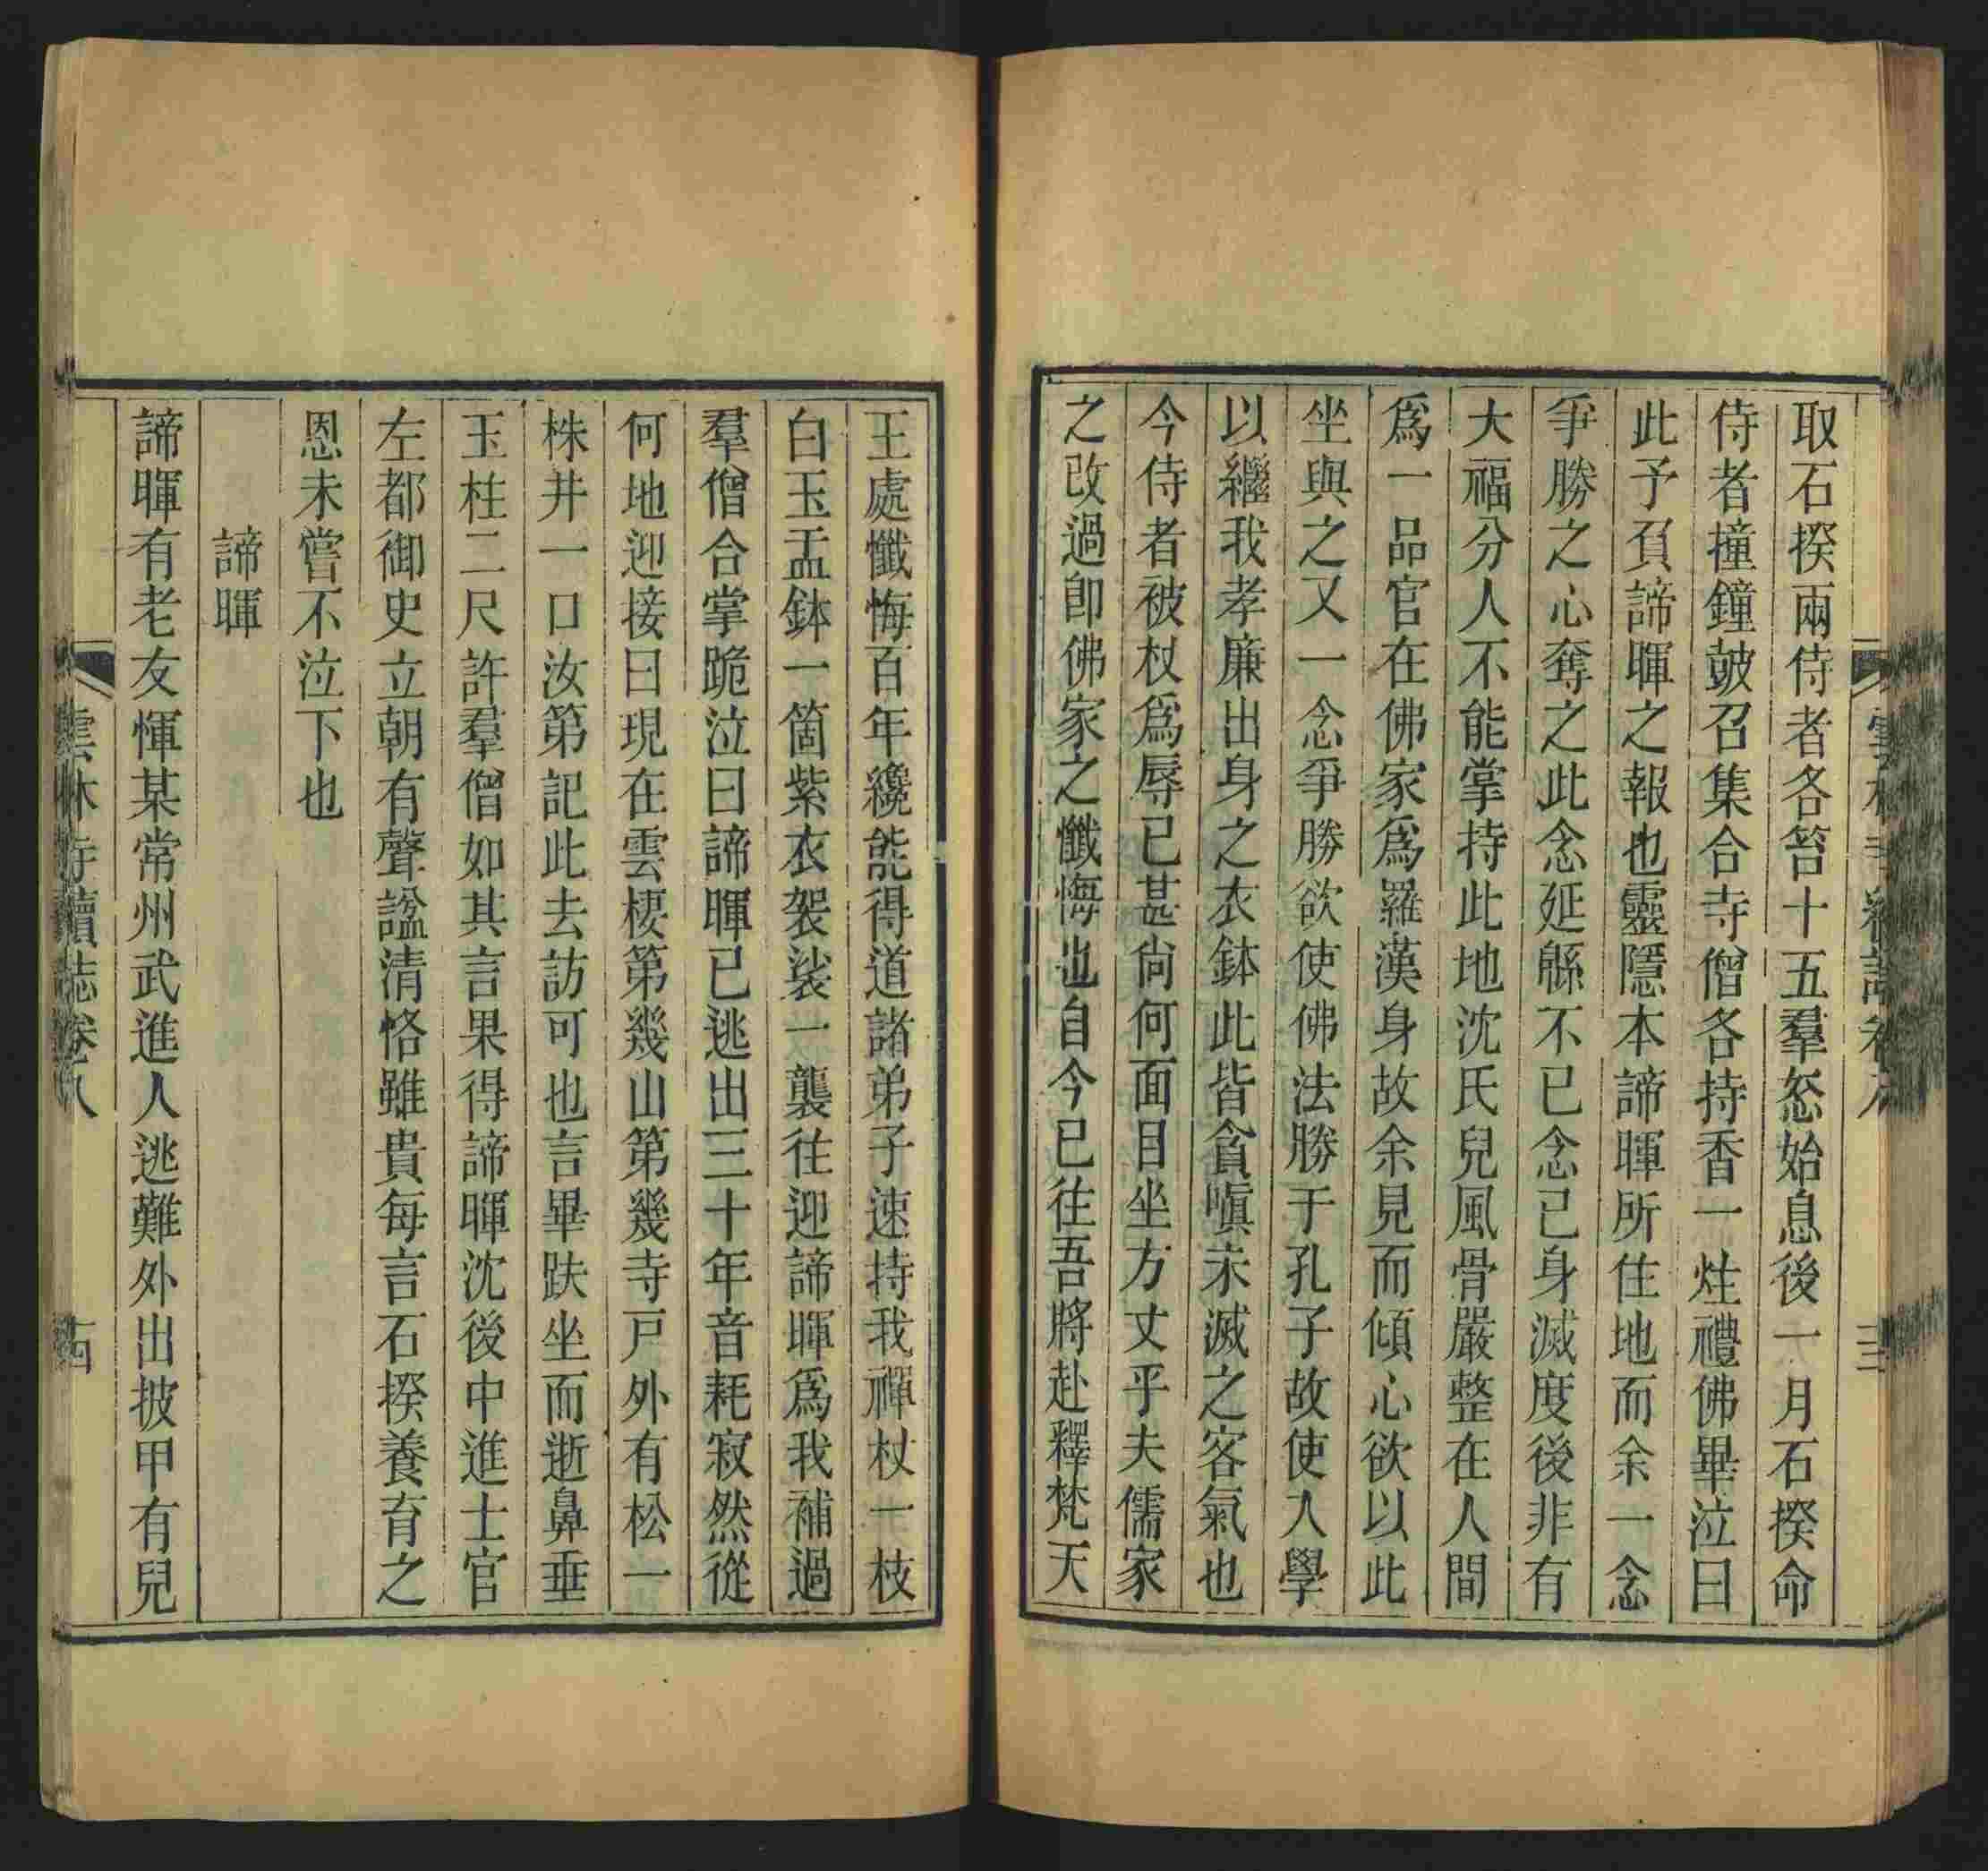 取石揆兩侍者各笞十五羣怒始息後一月石揆命
侍者撞鐘皷召集合寺僧各持香一炷禮佛畢泣曰
此予負諦暉之報也靈隱本諦暉所住地而余一念
爭勝之心奪之此念延緜不已念已身滅度後非有
大福分人不能掌持此地沈氏兒風骨嚴整在人間
爲一品官在佛家爲羅漢身故余見而傾心欲以此
坐與之又一念爭勝欲使佛法勝于孔子故使入學
以繼我孝廉出身之衣鉢此皆貪嗔未滅之客氣也
今侍者被杖爲辱已甚尙何面目坐方丈乎夫儒家
之改過卽佛家之懺悔也自今已往吾將赴釋梵天
王處懺悔百年纔能得道諸弟子速持我禪杖一枝
白玉盂鉢一箇紫衣袈裟一襲往迎諦暉爲我補過
羣僧合掌跪泣曰諦暉已逃出三十年音耗寂然從
何地迎接曰現在雲棲第幾山第幾寺戸外有松一
株井一口汝第記此去訪可也言畢趺坐而逝鼻垂
玉柱二尺許羣僧如其言果得諦暉沈後中進士官
左都御史立朝有聲諡清恪雖貴每言石揆養育之
恩未嘗不泣下也
諦暉
諦暉有老友惲某常州武進人逃難外出披甲有兒
雲林寺續誌卷八
十四